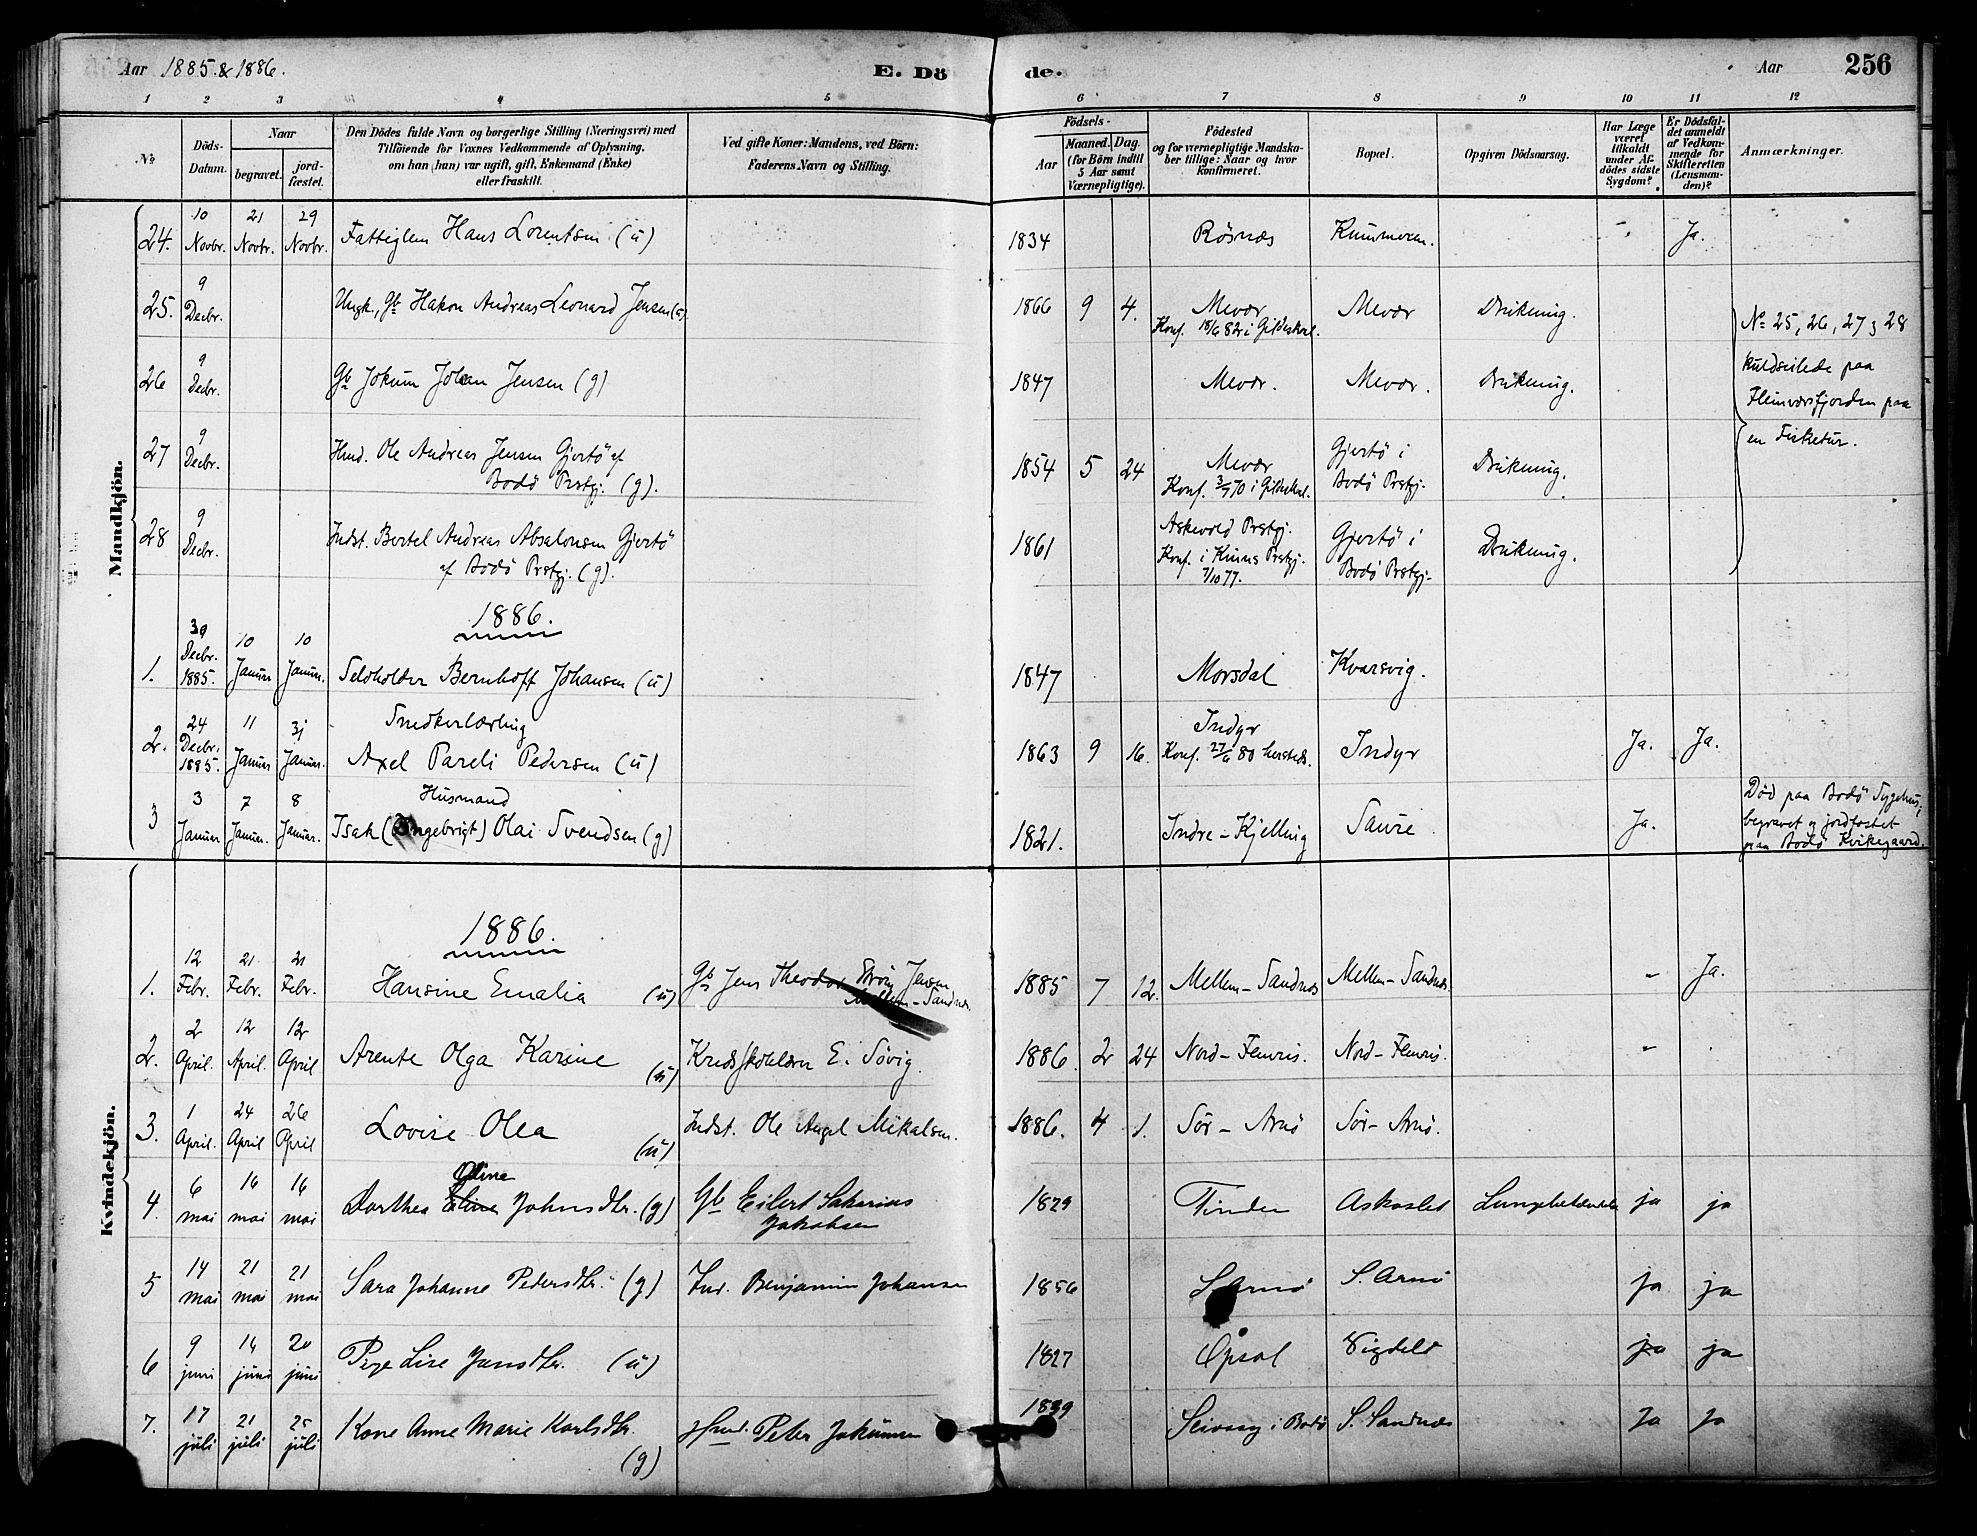 Aar 1885 & 1886.
E. Dö
de.
Aar
256
1 2 3 4 5 6 7 8 9 10 11 12
No
Döds-
Datum.
Naar
begravet.
jord-
fæstet.
Den Dödes fulde Navn og borgerlige Stilling (Næringsvei) med
Tilföiende for Voxnes Vedkommende af Oplysning,
om han (hun) var ugift, gift, Enkemand (Enke)
eller fraskilt.
Ved gifte Koner: Mandens, ved Börn:
Faderens Navn og Stilling.
Födsels-
Aar
Maaned. Dag.
(for Börn indtil
5 Aar samt
Værnepligtige).
Födested
og for værnepligtige Mandska-
ber tillige: Naar og hvor
konfirmeret.
Bopæl.
Opgiven Dödsaarsag.
Har Læge
været
tilkaldt
under Af-
dödes sidste
Sygdom?
Er Dödsfal-
det anmeldt
af Vedkom-
mende for
Skifteretten
(Lensman-
den)?
Anmærkninger.
Mandkjön.
24. 10 Novbr. 21 Novbr. 29 Novbr. Fattiglem Hans Lorentsen (u) 1834 Røsnæs Ja.
25. 9 Decbr. Ungk., Gb Hakon Andreas Leonard Jensen (u) 1866 9 4. Mevær Mevær Drukning.
Konf. 18/6 82 i Gildeskaal.
26 9 Decbr. Gb Jokum Johan Jensen (g) 1847 Mevær. Mevær. Drukning.
No 25, 26, 27 & 28
kuldseilede paa
Fleinværsfjorden paa
en Fisketur.
27 9 Decbr. Husd. Ole Andreas Jensen Gjertö af
Bodö Prstgj. (g). 1854 5 24 Mevær Gjertö i Drukning.
Konf. 3/7 70 i Gildeskaal. Bodö Prstgj.
28 9 Decbr. Indst. Bertel Andreas Absalonsen Gjertö
af Bodö Prstgj. (g). 1861 Askevold Prstgj. Gjertö i Drukning.
Konf. i Kinns Prstgj. Bodö Prstgj.
7/10 77.
1886.
1. 30 Decbr. 1885. 10 Januar 10 Januar. Bernhoff Johansen (u) 1847 Morsdal Kvarsvig.
2. 24 Decbr. 1885. 11 Januar 31 Januar. Snedkerlærling
Axel Pareli Pedersen (u) 1863 9 16. Indyr Indyr Ja. Ja.
Konf. 27/6 80 hersteds.
3 3 Januar 7 Januar. 8 Januar. Husmand
Isak (Ingebrigt) Olai Svendsen (g) 1821. Indre-Kjelling Saure Ja.
Död paa Bodö Sygehus,
begravet og jordfæstet
paa Bodö Kirkegaard.
Kvindekjön.
1886.
1. 12 Febr. 21 Febr. 21 Febr. Hansine Emalia (u) Gb Jens Theodor Strøm Jensen
Mellem-Sandnæs. 1885 7 12. Mellem-Sandnæs Mellem-Sandnæs. - Ja.
2. 2 April. 12 April. 12 April Arente Olga Karine (u) E. Sövig. 1886. 2 24 Nord-Fleuris. Nord-Fleuris. -
3. 1 April. 24 April 26 April Lovise Olea (u) Indst. Ole Angel Mikalsen. 1886. 4 1. Sör-Arnö Sör-Arnö.
4. 6 mai 16 mai 16 mai Oline
Dorthea Eline Johnsdtr. (g) Gb Eilert Sakarias
Jakobsen 1829 Tinden Askaslet Lungebetændelse ja ja
5 14 mai 21 mai 21 mai Sara Johanne Pedersdtr. (g) Ind. Benjamin Johansen 1856 S. Arnö S. Arnö ja ja
6 9 juni 14 juni 20 juni Lise Jensdtr. (u) 1827 Opsal Vigdelt ja ja
7. 17 juli 21 juli 25 juli Kone Anne Marie Karlsdtr.
(g) Husmd. Peter Jokumsen 1839 Seivaag i Bodö S. Sandnæs Ja Ja